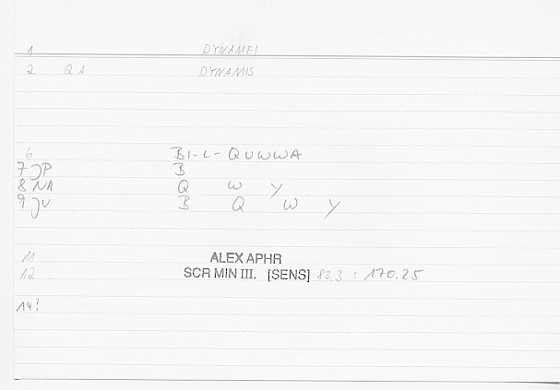 1 DYNAMEI
2 QA DYNAMIS
6 BI-L-QUWWA
7 JP B
8 NA Q W Y
9 JV B Q W Y
11 ALEX APHR
12 SCR MIN III. [SENS] 83.3 : 170.25
14?